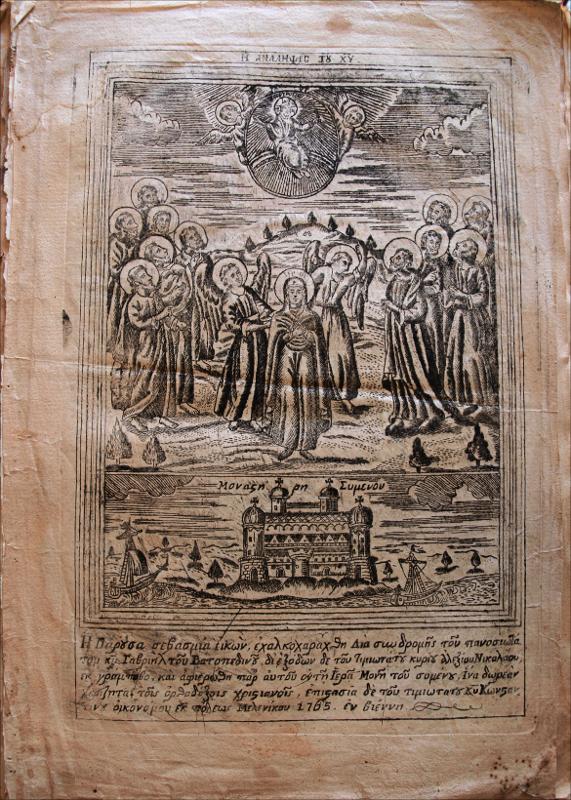 Η ΑΝΑΛΗΨΙΣ ΤΟΥ ΧΥ
Μοναςη ρη Συμενου
Η Παρȣσα σεβασμία εἰκών, ἐχαλκοχαράχθη Δια συνδρομῆς τοῦ πανοσιωτά
του κυ: Γαβριὴλ τοῦ Βατοπεδινȣ, δι ἐξόδων δὲ τοῦ Τιμιωτάτȣ κυρίȣ Ἀλεξίου Νικολάου,
ἐκ, καὶ ἀφιερώθη παρ αὐτοῦ Ἱερᾷ Μονῇ τοῦ σομενȣ, Ἵνα δωρεὰν
τοὺς ὀρθοδόξοις χριςιανοῖς, ἐπιςασία δὲ τοῦ τιμιωτάτȣ Κυ Κωνςαν
οἰκονόμου ἐκ πόλεως Μελενίκου 1765. ἐν βιέννῃ